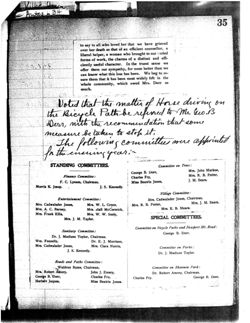 35
to say to all who loved her that we have grieved
over her death as that of an efficient committee, a
liberal helper, a woman who brought to our united
forms of work, the charms of a distinct and efficiently useful character. In the truest sense we
offer them our sympathy, for none better than we
can know what this loss has been. We beg to assure them that it has been most widely felt in the
whole community, which owed Mrs. Dero so
much.
Voted that the matter of Horse driving on
the Bicycle Path be referred to Mr. Geo. B
Derr, with the recommendation that some
measure be taken to stop it.
The following committees were appointed
for the ensuing year:-
STANDING COMMITTEES.
Finance Committee:
F. C. Lyman, Chairman.
Morris K. Jesup, J. S. Kennedy.
Entertainment Committee:
Mrs. Cadwalader Jones, Mrs. W. L. Green,
Mrs. A. C. Barney,
Mrs. Frank Ellis, Mrs. W. W. Seely,
Mrs. J. M. Taylor.
Sanitary Committee:
Dr. J. Madison Taylor, Chairman.
Wm. Fennelly, Dr. E. J. Morrison,
Mrs. Cadwalader Jones, Mrs. Clara Norris,
J. S. Kennedy.
Roads and Paths Committee:
Waldron Bates, Chairman.
Mrs. Robert Amory, John J. Emery,
George B. Dorr, Charles Fry,
Herbert Jaques, Miss Beatrix Jones.
Committee on Trees:
George B. Dorr, Mrs. John Markoe,
Charles Fry, Mrs. R. B. Potter,
Miss Beatrix Jones, J. M. Sears.
Village Committee:
Mrs. Cadwalader Jones, Chairman.
Mrs. R. B. Potter, Mrs. J. M. Sears,
Mrs. E. B. Mears.
SPECIAL COMMITTEES.
Committee on Bicycle Paths and Newport Mt. Road:
George B. Dorr.
Committee on Parks:
Dr. J. Madison Taylor.
Committee on Shannon Fund:
Dr. Robert Amory, Chairman.
Charles Fry, George B. Dorr.